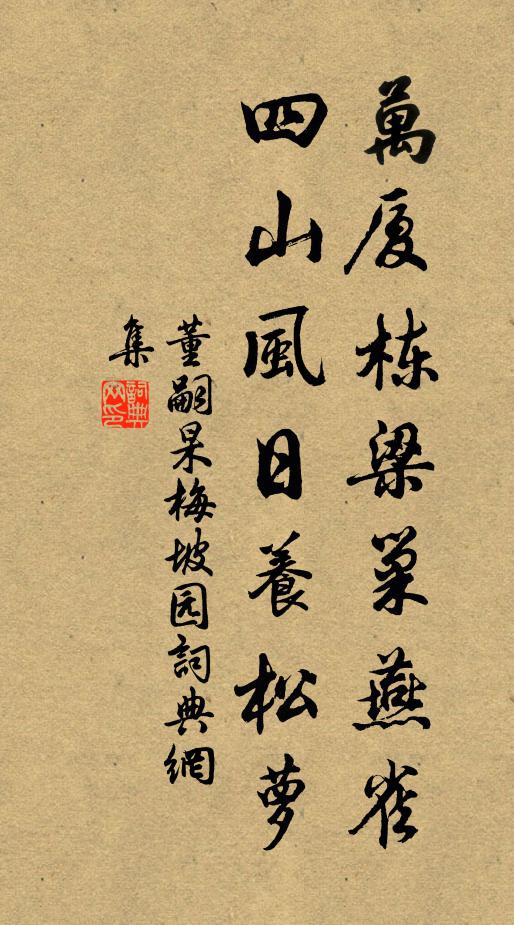 萬厦栋梁巢燕雀
四山風日養松萝
董嗣杲梅坡园詞典網
集
詞典
网印